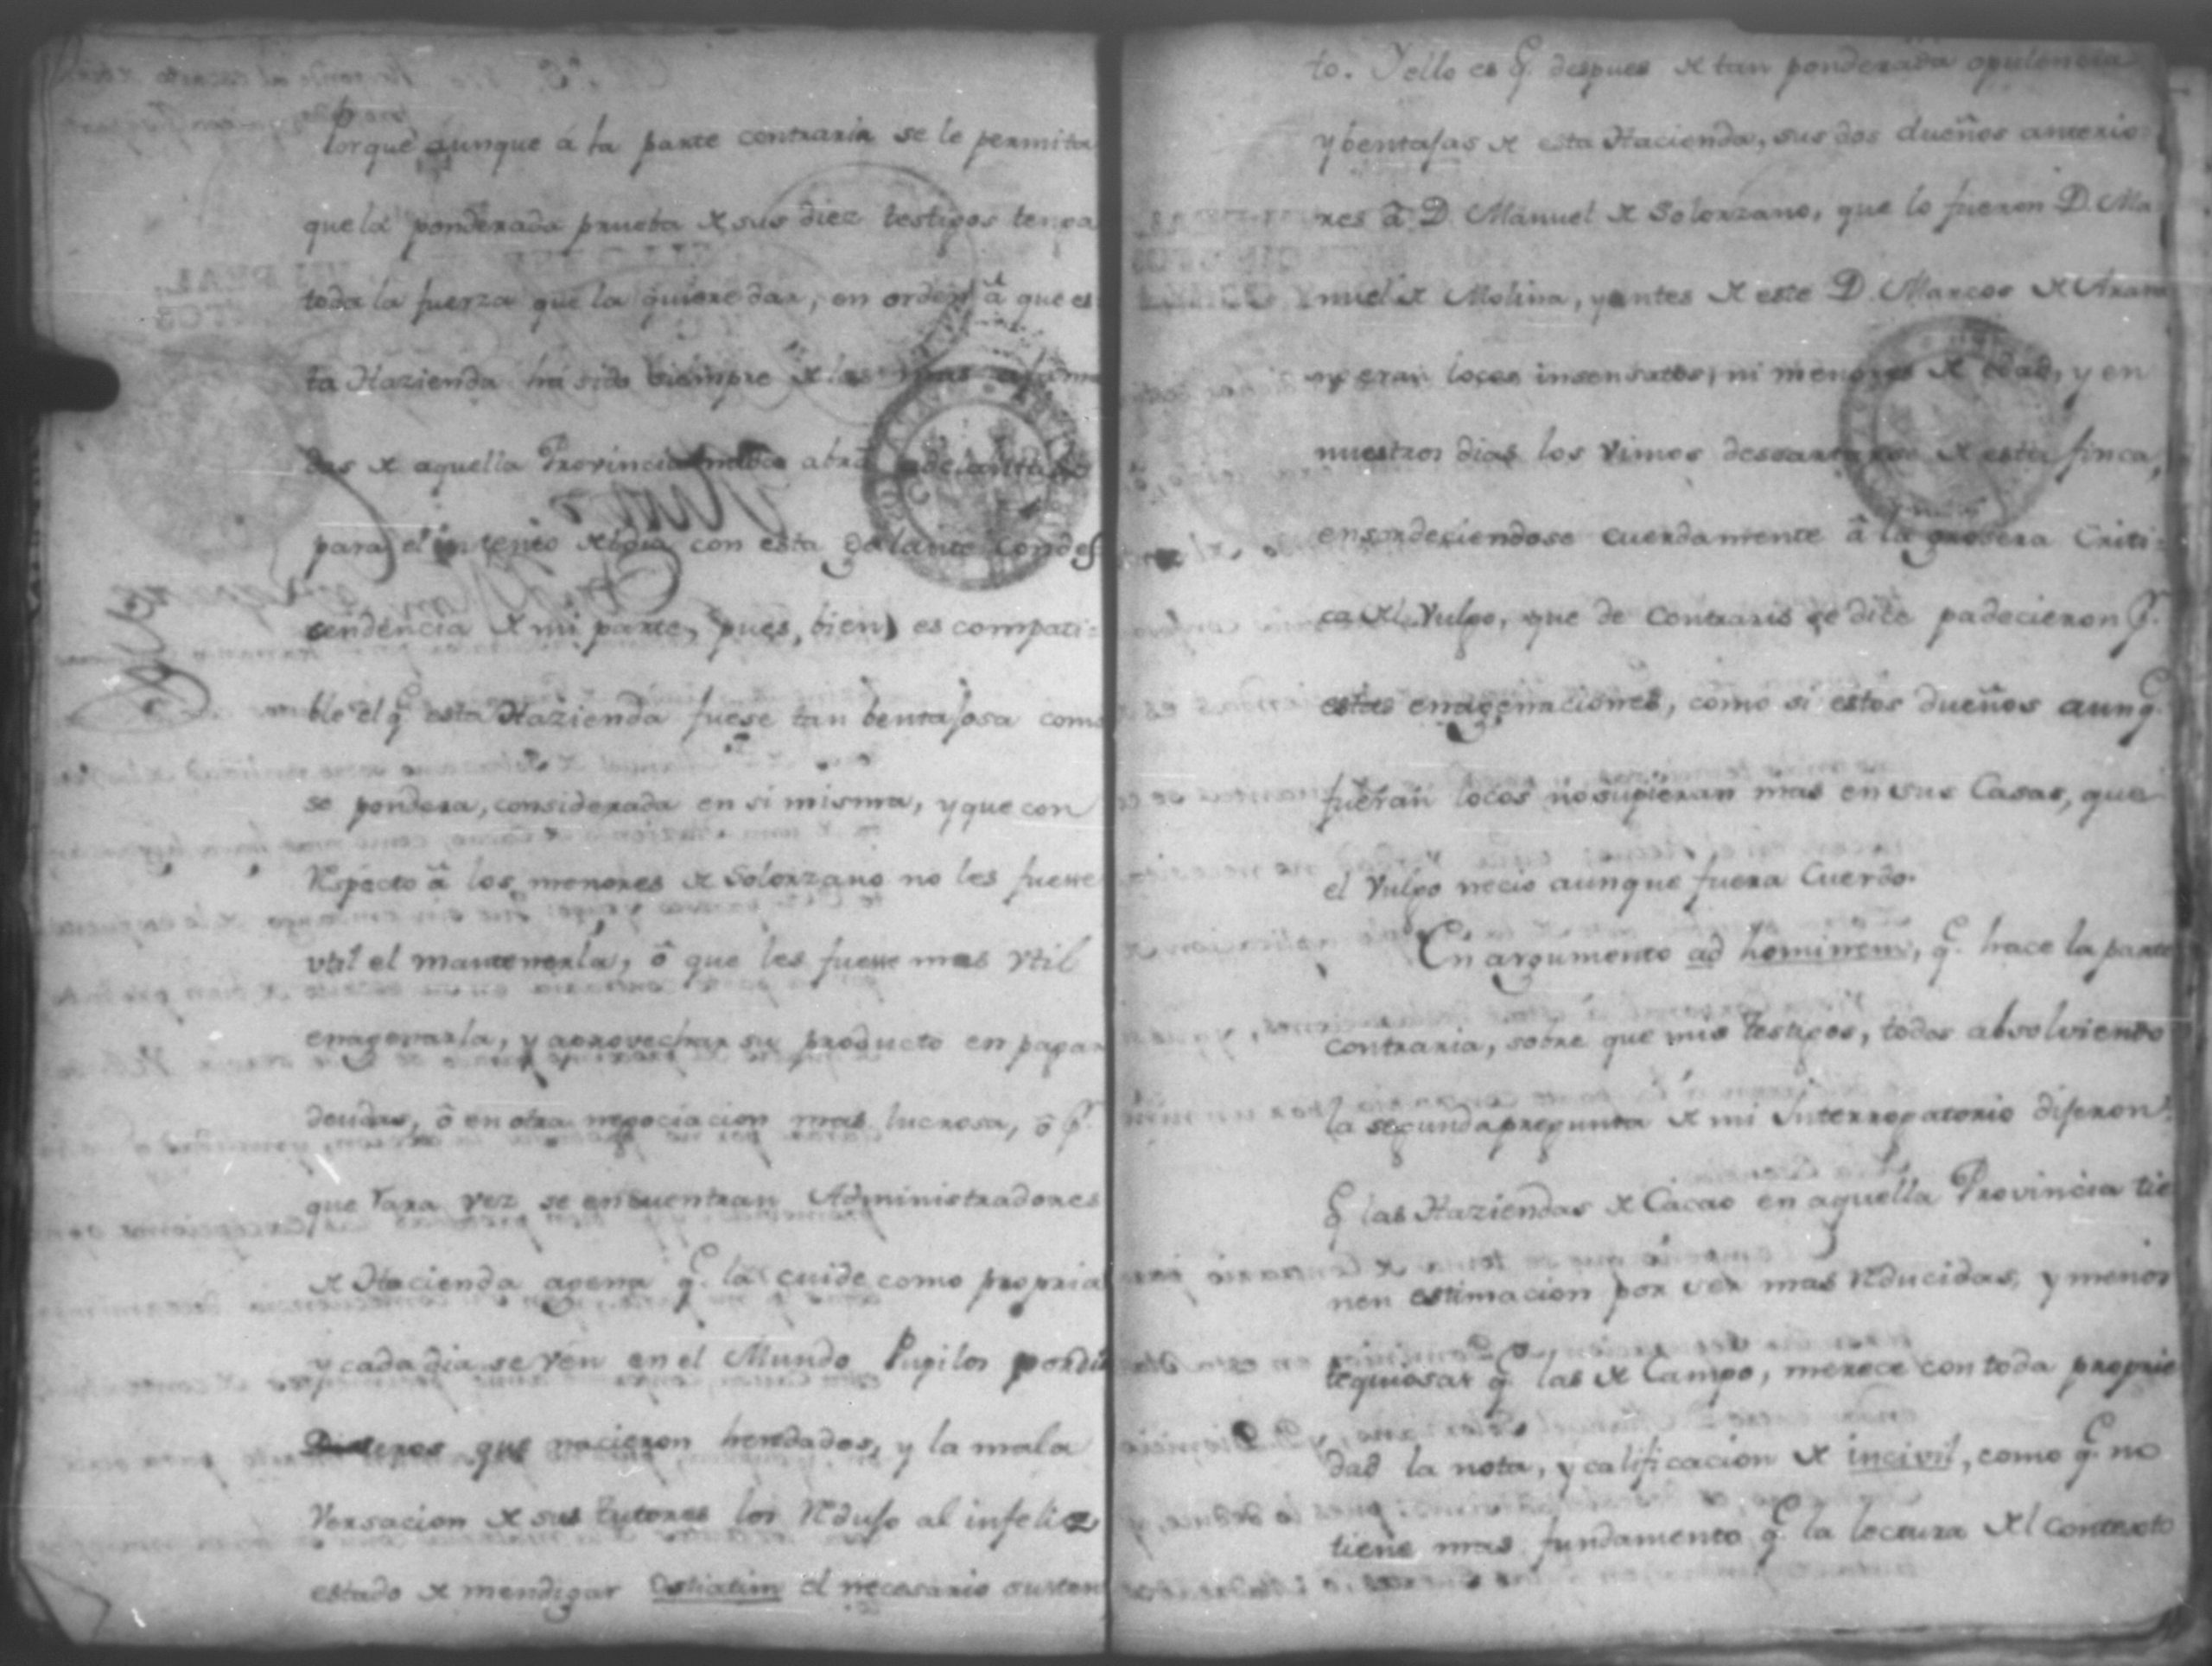 Porque aunque á la parte contraria se le permita
que la ponderada prueba de sus diez testigos tenga
toda la fuerza que la quiere dar, en orden â que es
ta Hazienda há sido siempre de las mas
das de aquella Provincia abrá adelantado
para el intento con esta galante condes
cendencia de mi parte, pues, bien es compati=
ble el q.e esta Hazienda fuese tan bentajosa como
se pondera, considerada en si misma, y que con
Respecto â los menores de Solorzano no les fuesse
vtil el mantenerla, ô que les fuesse mas vtil
enagenarla, y aprovechar su producto en pagar
deudas, ô en otra negociacion mas lucrosa, ô p.r
que rara vez se encuentran Administradores
de Hacienda agena q.e la cuide como propria
y cada dia se ven en el Mundo Pupilos
que nacieron heredados, y la mala
Versacion de sus tutores los Redujo al infeliz
estado de mendigar Ostiatim el necesario susten
to. Y ello es q.e despues de tan ponderada opulencia
y bentajas de esta Hacienda, sus dos dueños anterio=
res â D. Manuel de Solorzano, que lo fueron D. Ma
nuel de Molina, y antes de este D. Marcos de
ni eran locos insensatos, ni menores de edad, y en
nuestros dias los vimos descartarse de esta finca,
ensordeciendose cuerdamente â la grosera Criti=
ca del Vulgo, que de contrario se dice padecieron p.r
estas enagenaciones, como si estos dueños aunq.e
fueran locos no supieran mas en sus Casas, que
el Vulgo necio aunque fuera Cuerdo.
En argumento ad hominem, q.e hace la parte
contraria, sobre que mis testigos, todos absolviendo
la segunda pregunta de mi Interrogatorio dijeron
q.e las Haziendas de Cacao en aquella Provincia tie
nen estimacion por ser mas Reducidas, y menos
q.e las de Campo, merece con toda proprie
dad la nota, y calificacion de incivil, como q.e no
tiene mas fundamento q.e la lectura del contexto